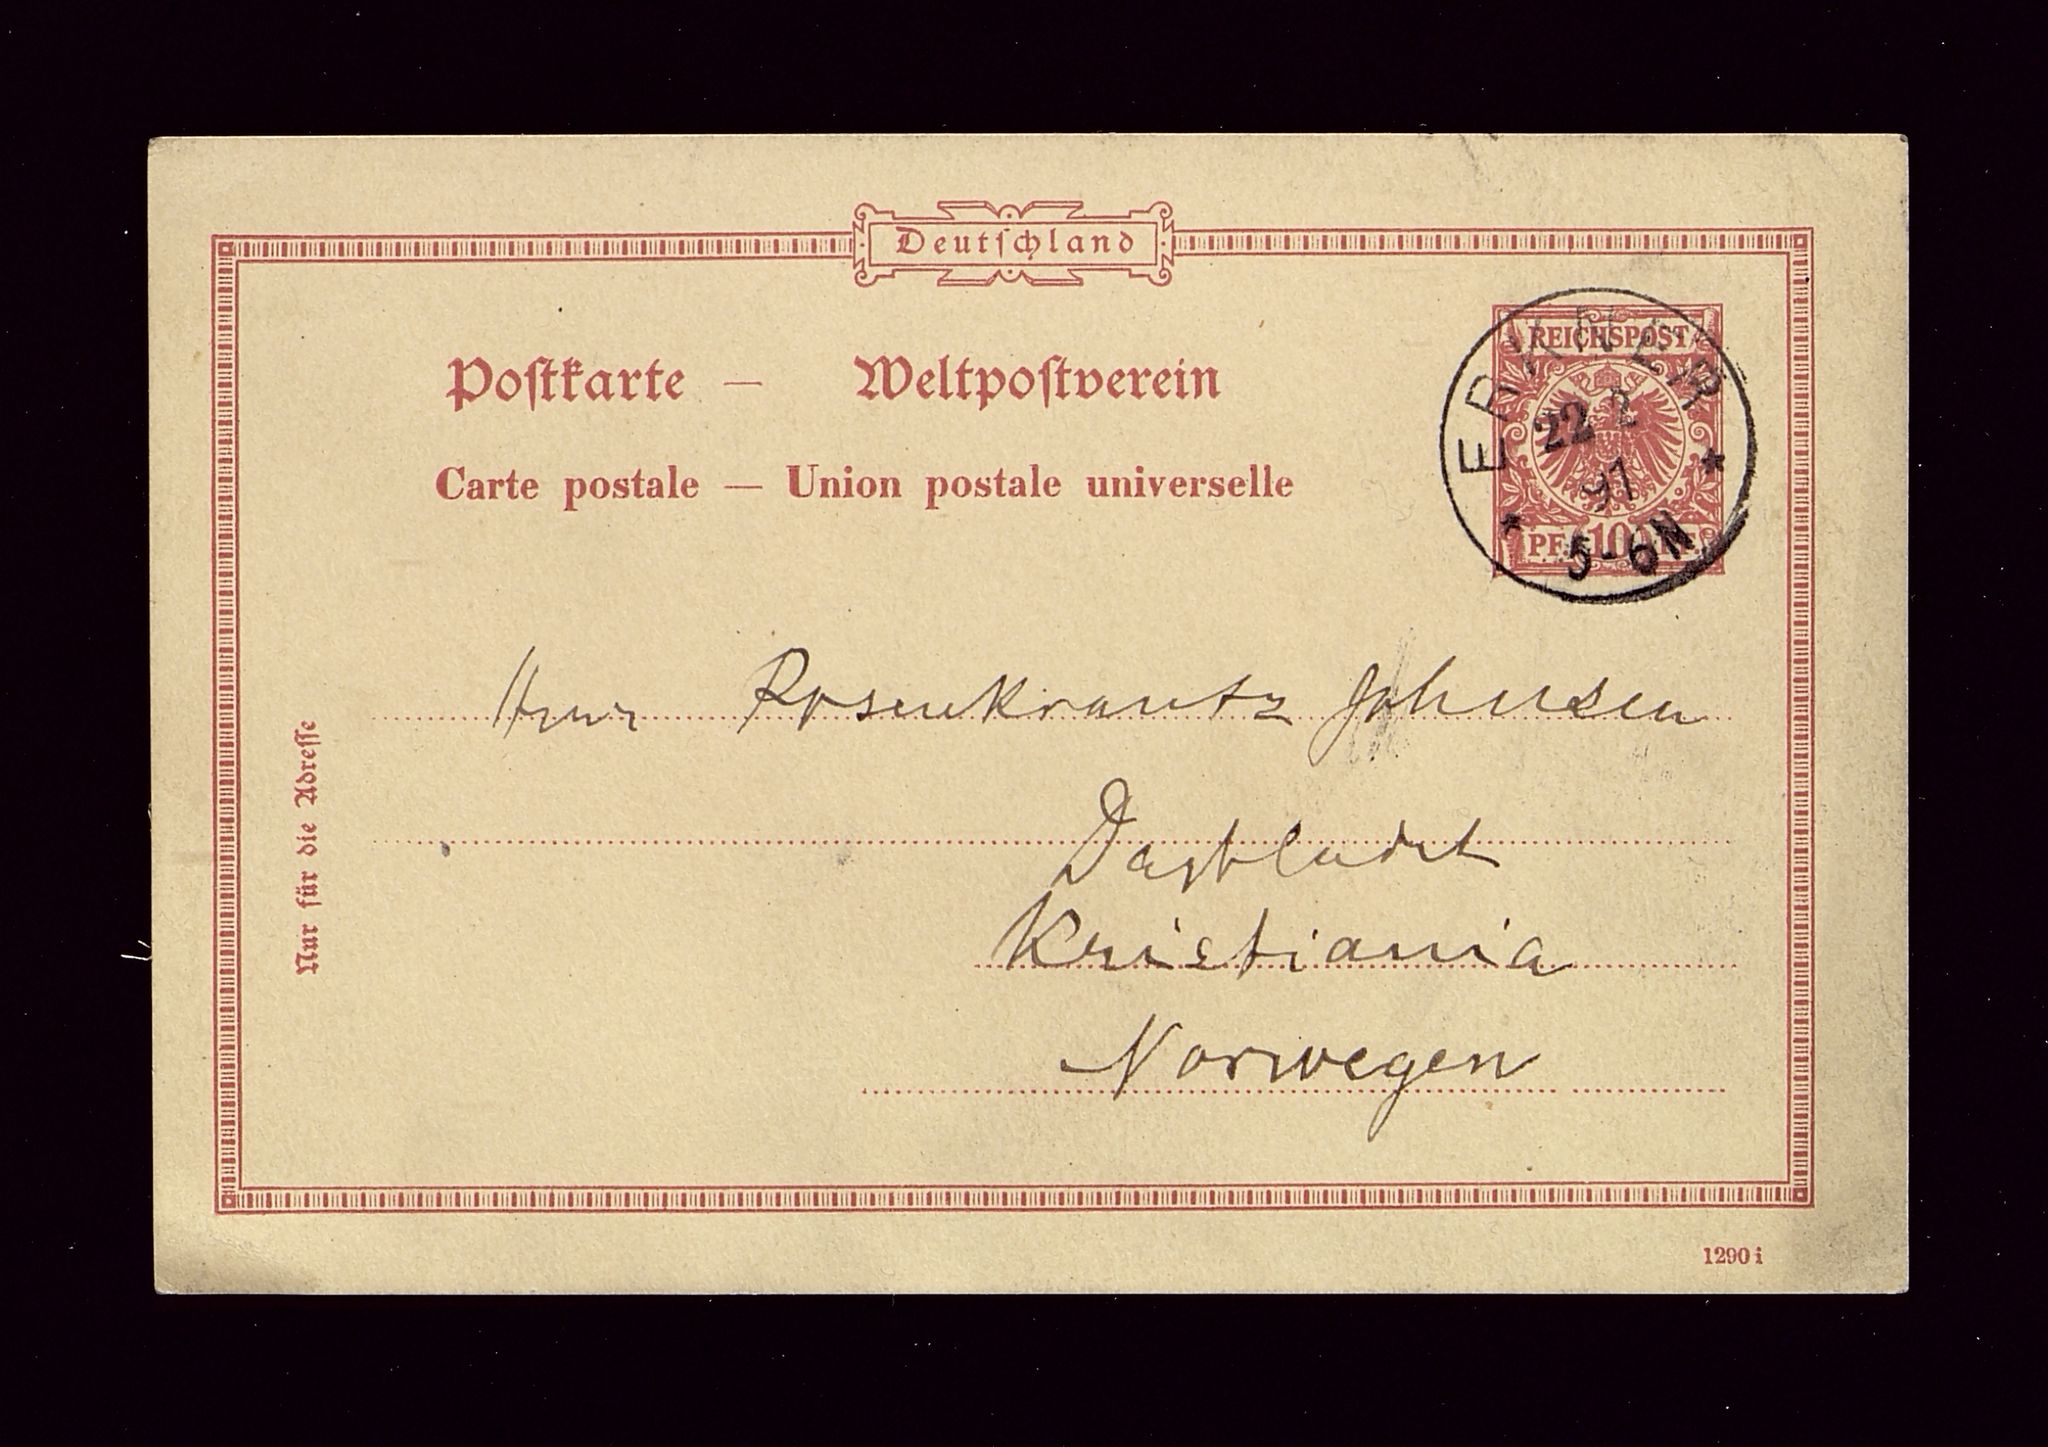 Deutschland
Postkarte — Weltpostverein
Carte postale — Union postale universelle
REICHSPOST
PF. 10 PF.
ERKNER
22 2
97
5-6N
Nur für die Adresse
Herrn Rosenkrantz Johnsen
Dagbladet
Kristiania
Norwegen
1290 i